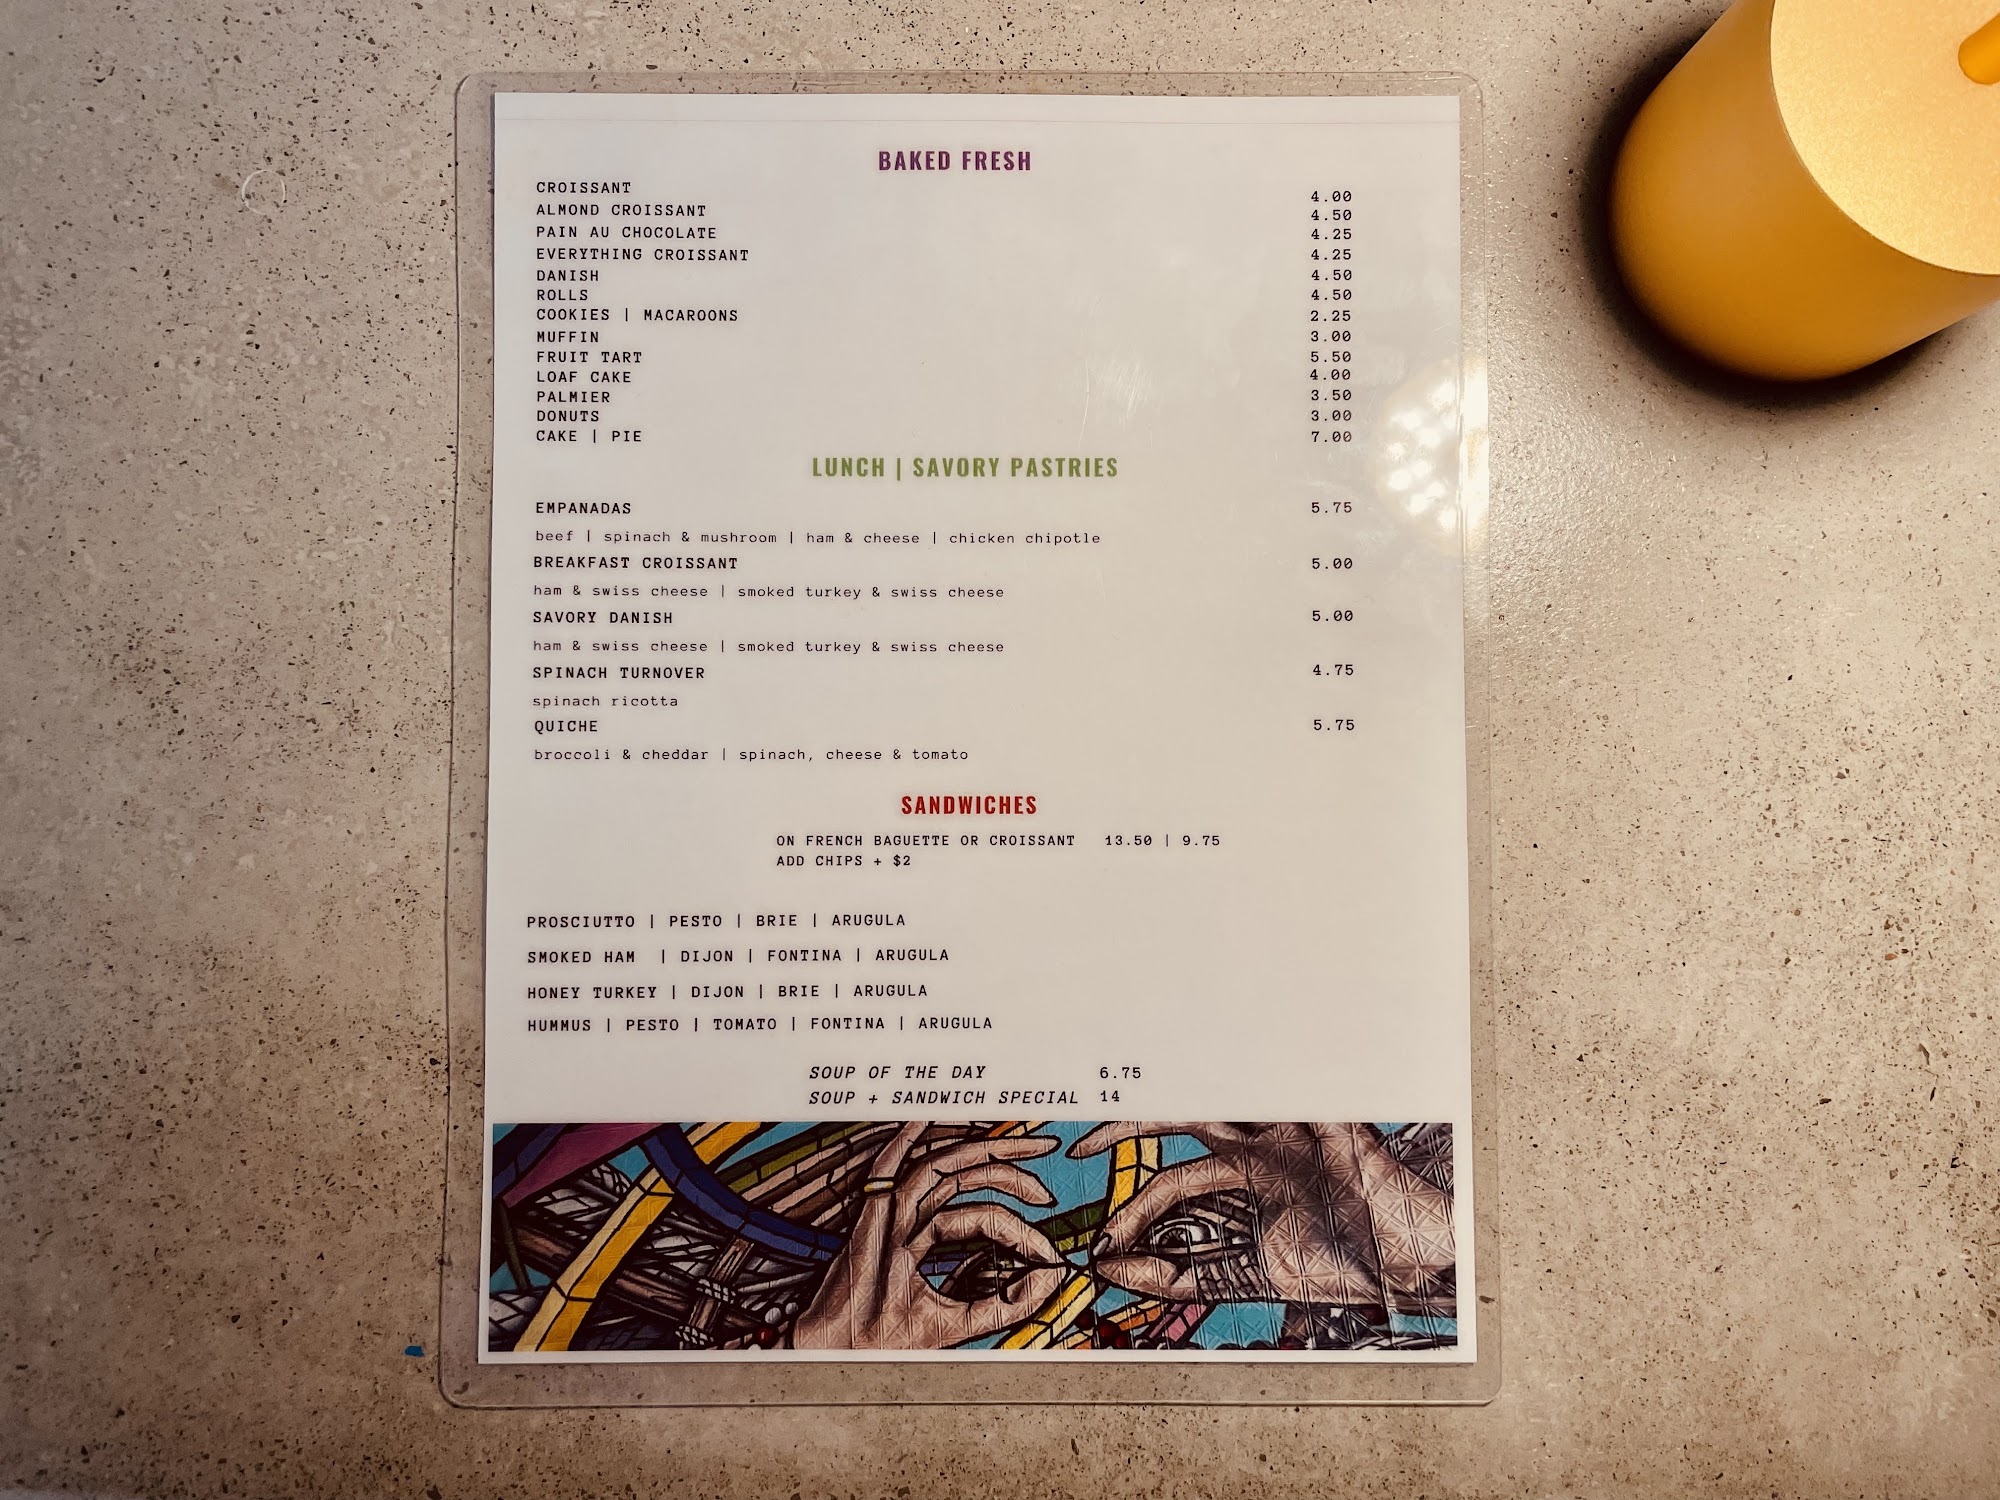 BAKED FRESH
CROISSANT 4.00
ALMOND CROISSANT 4.50
PAIN AU CHOCOLATE 4.25
EVERYTHING CROISSANT 4.25
DANISH 4.50
ROLLS 4.50
COOKIES | MACAROONS 2.25
MUFFIN 3.00
FRUIT TART 5.50
LOAF CAKE 4.00
PALMIER 3.50
DONUTS 3.00
CAKE | PIE 7.00
LUNCH | SAVORY PASTRIES
EMPANADAS 5.75
beef | spinach & mushroom | ham & cheese | chicken chipotle
BREAKFAST CROISSANT 5.00
ham & swiss cheese | smoked turkey & swiss cheese
SAVORY DANISH 5.00
ham & swiss cheese | smoked turkey & swiss cheese
SPINACH TURNOVER 4.75
spinach ricotta
QUICHE 5.75
broccoli & cheddar | spinach, cheese & tomato
SANDWICHES
ON FRENCH BAGUETTE OR CROISSANT 13.50 | 9.75
ADD CHIPS + $2
PROSCIUTTO | PESTO | BRIE | ARUGULA
SMOKED HAM | DIJON | FONTINA | ARUGULA
HONEY TURKEY | DIJON | BRIE | ARUGULA
HUMMUS | PESTO | TOMATO | FONTINA | ARUGULA
SOUP OF THE DAY 6.75
SOUP + SANDWICH SPECIAL 14